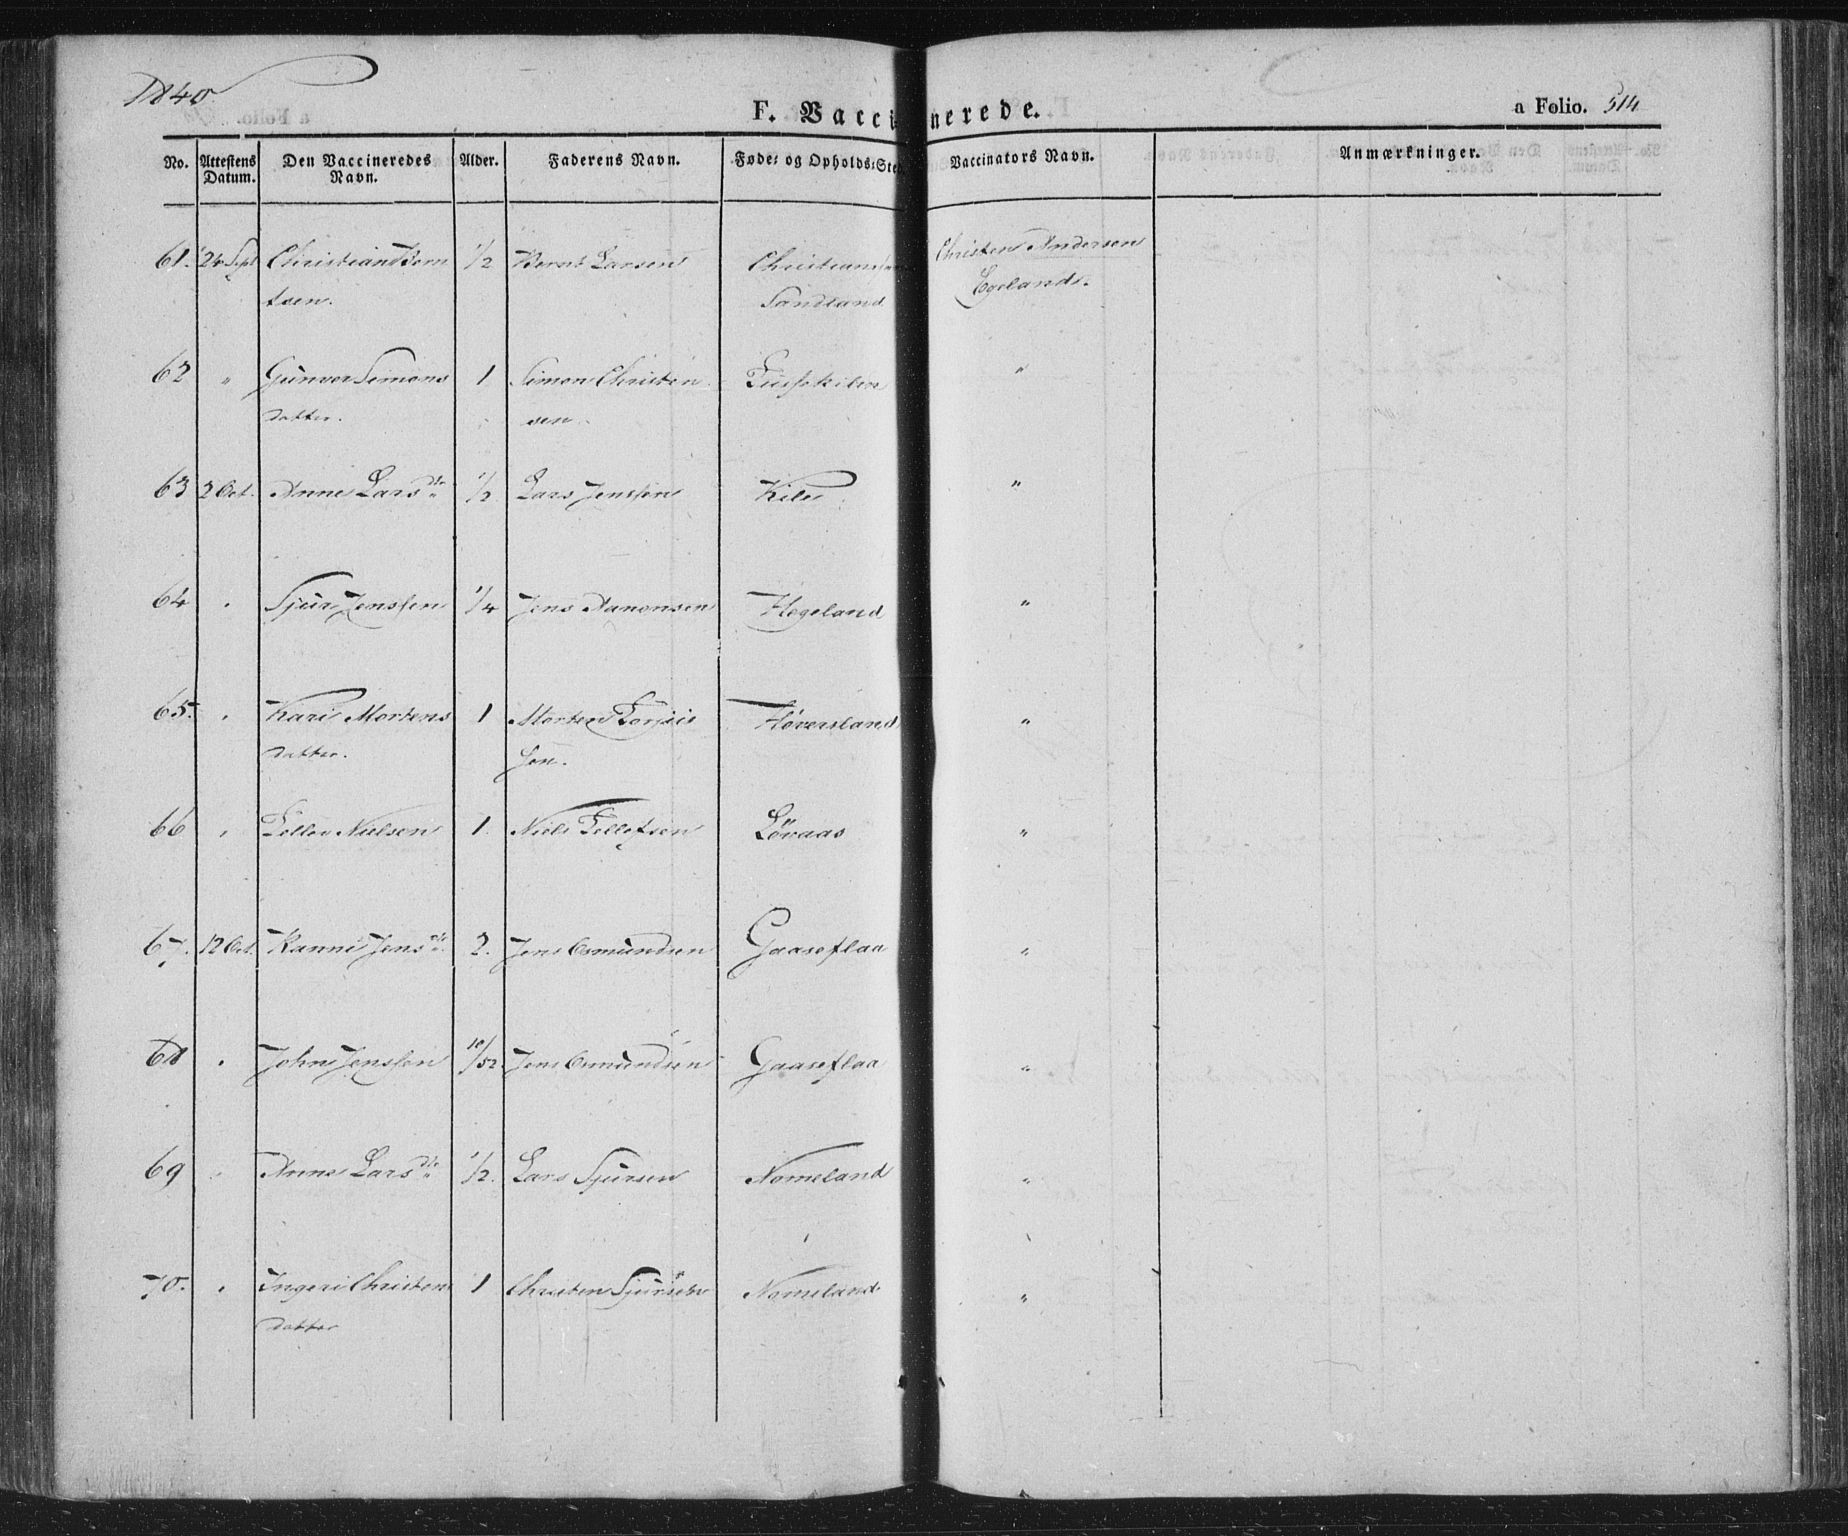 1840
F. Vaccinerede.
a Folio. 514
No. Attestens Datum. Den Vaccineredes Navn. Alder. Faderens Navn. Føde= og Opholds=Sted. Vaccinators Navn. Anmærkninger.
61. 24 Sept Christian Bern 1/2 Bernt Larsen Christianssand Christen Andersen
tsen. Sandland Egeland.
62 " Gunvor Simons 1 Simon Christen "
datter. sen.
63 2 Oct. Anne Larsdtr 1/2 Lars Jenssen Kile "
64 " Sjur Jenssen 1/4 Jens Aanonsen Hegeland "
65. " Kari Mortens 1 Morten Torjus Høversland "
datter. sen.
66 " Tellev Nielsen 1. Niels Tellefsen Løvaas "
67. 12 Oct. Ranni Jensdtr. 2. Jens Osmundsen Gaaseflaa "
68 " John Jenssen 10/52 Jens Osmundsen Gaaseflaa "
69 " Anne Larsdtr 1/2. Lars Sjursen Nomeland "
70. " Ingeri Christens 1 Christen Sjursen Nomeland "
datter